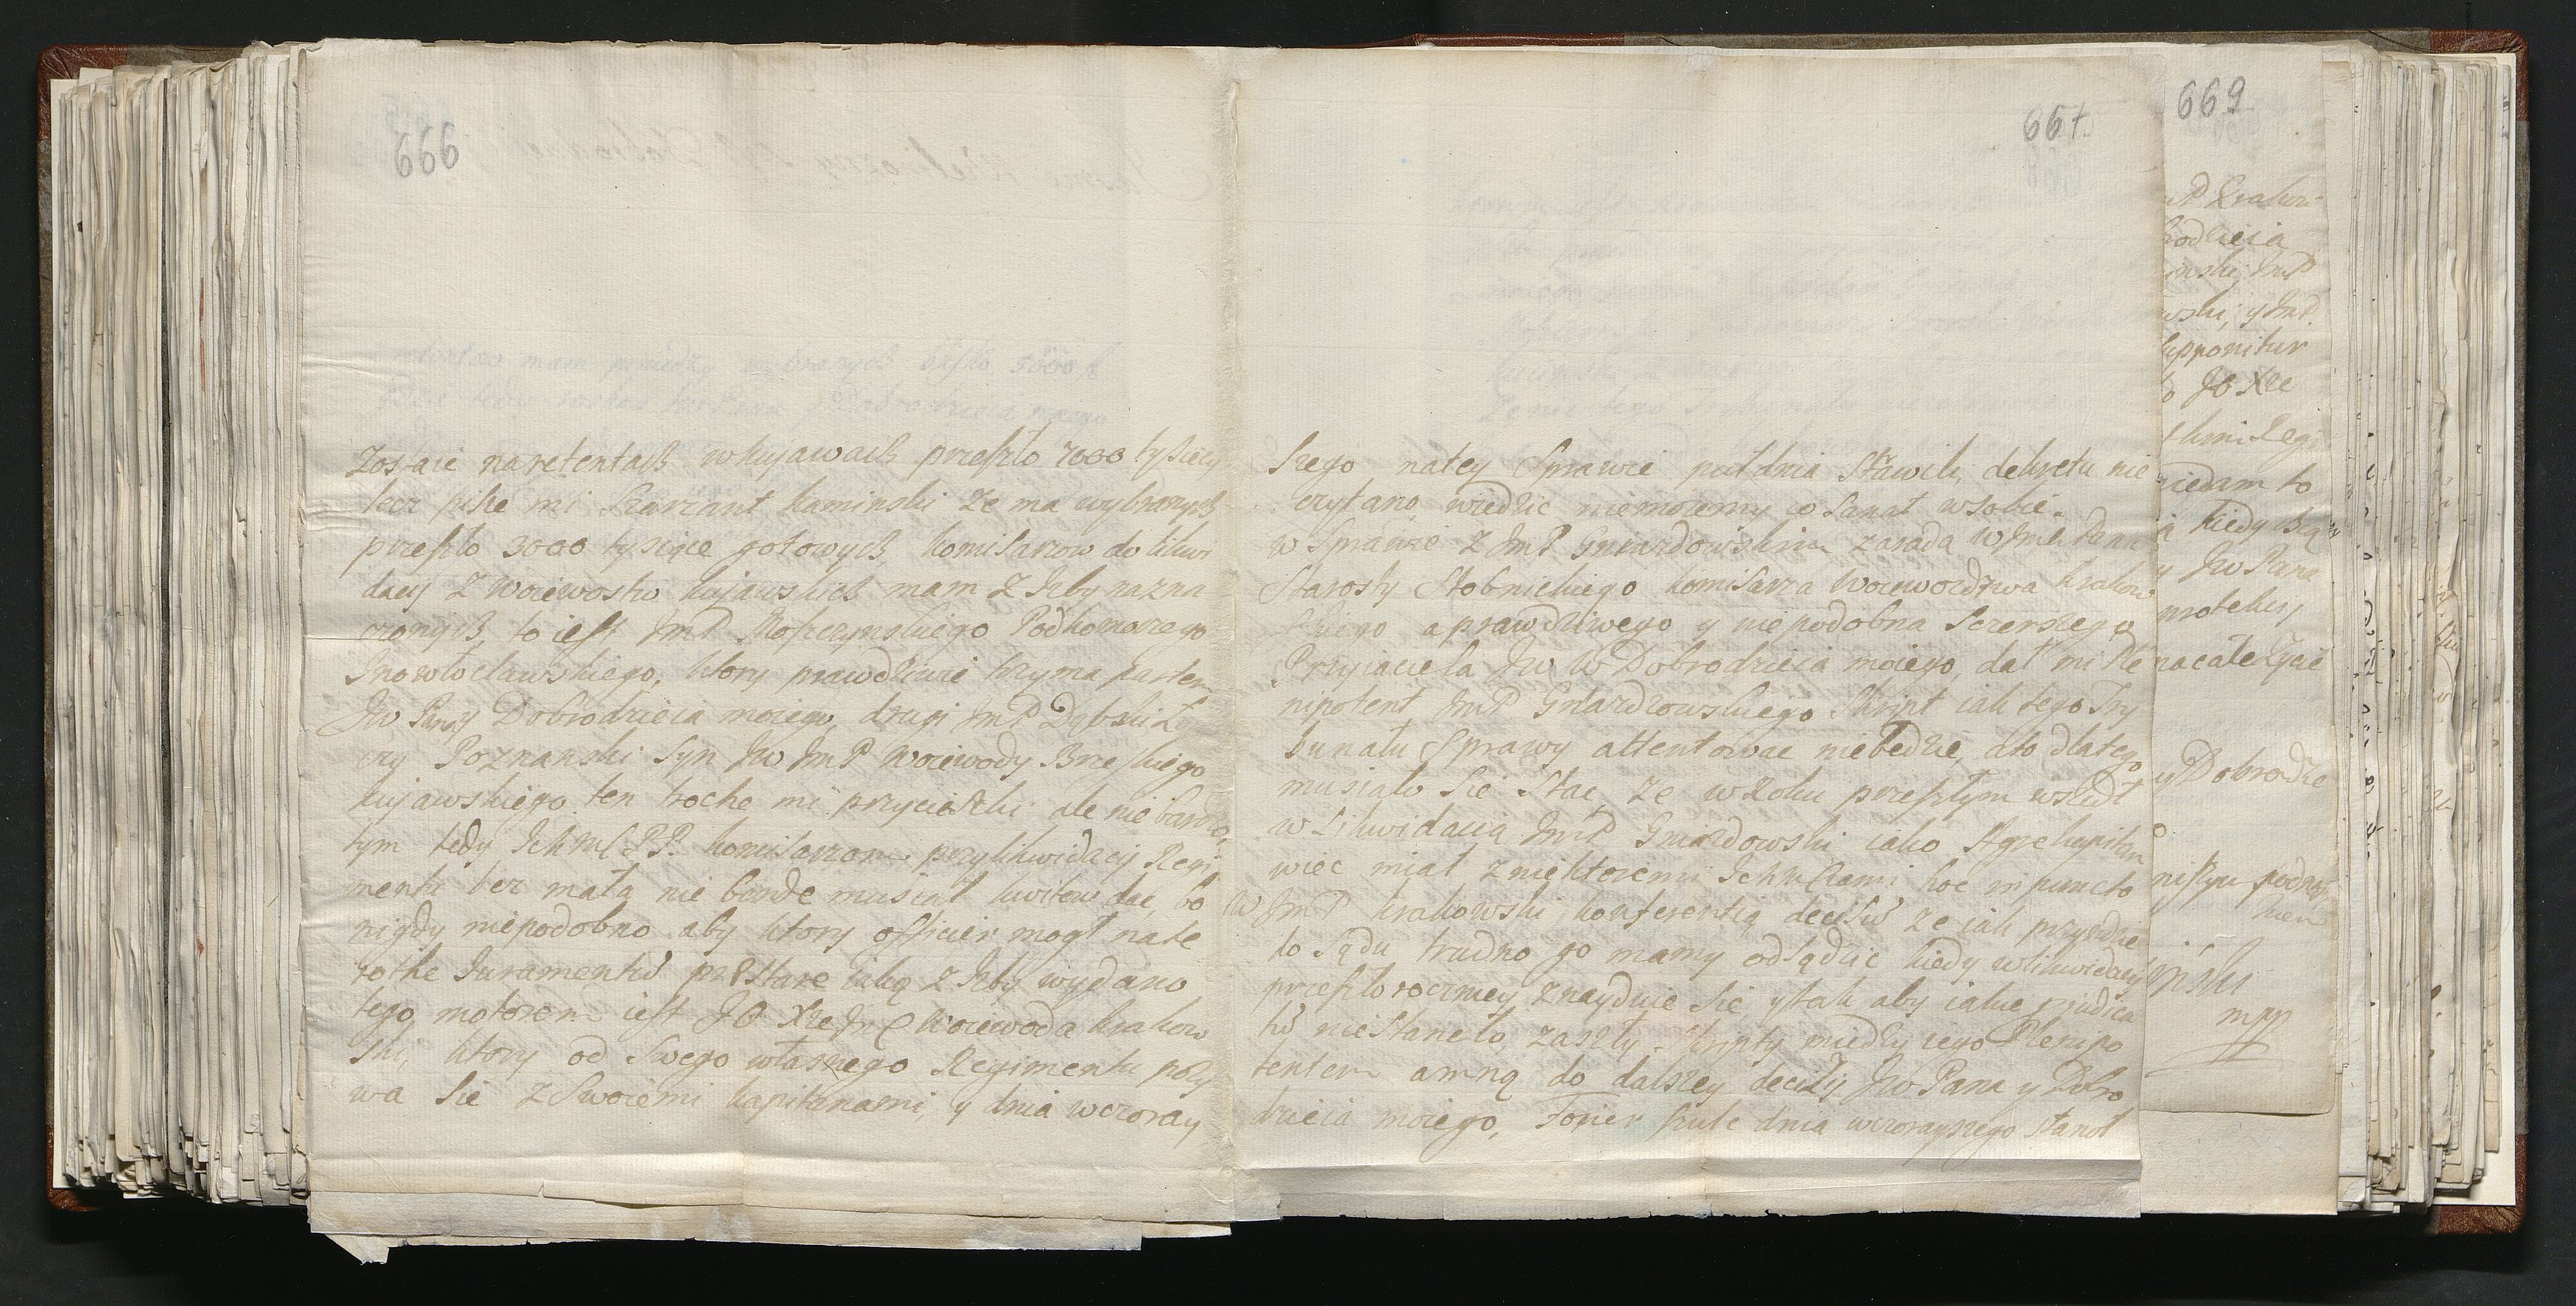 666
Zostaie naretentach wkujawach przeszło 7000 tysiecy
lecz pisze mi Szarzant Kaminski ze ma wybranych
przeszło 3000 tysiące gotowych, komisarzow do likwi
dacij z woiewostw kujawskich mam z Izby nazna
czonych, to iest JmP Moszczynskiego Podkomorzego
Inowłocławskiego, ktory prawdziwie trzyma partem
Jw Pana y Dobrodzieia moiego, drugi JmP Dąbski Ło
czy Poznanski syn Jw JmP Woiewody Brzeskiego
kujawskiego ten troche mi przyciezki ale nie bardzo,
tym tedy Ichm PP. komisarzom przylikwidacij Regi
mentu bez mała nie bende musiał kwitow dac, bo
nigdy niepodobno aby ktory officier mogł na te
rothe Juramentu przstaie iaką z Izby wydano
tego motorem iest JO Xże Jm Woiewoda krakow
ski, ktory od swego własnego Regimentu pozy
wa sie z swoiemi kapitanami, y dnia wczoray
667
szego natey sprawie puł dnia stawili, dekretu nie
czytano, wiedzic niemozemy co sanat wsobie.
w sprawie z JmP Gniazdowskim zasada WJm Pana
Starosty Stobnickiego komisarza Woiewodztwa krakow
skiego a prawdziwego y niepodobna szczerszego
Przyiaciela Jw W Dobrodzieia moiego, dał mi Ple
nipotent JmP Gniazdowskiego skript iak tego Try
bunału sprawy attentowac niebędzie, a to dlatego
musiało sie stac, ze w Roku przeszłym wszedł
w Likwidacią JmP Gniazdowski iako Agrekapitan
wiec miał z niektoremi Ichm Panami hoc in puncto
w JmP krakowski konferentią decisiv ze iak przydzie
to sądu trudno go mamy odsądzic kiedy wlikwidacij
przeszłoroczney znayduie sie, y tak aby iakie prjudica
tu nie staneło, zaszły skripty miedzy iego Plenipo
tentem a mną do dalszey decizij Jw Pana y Dobro
dzieia moiego, Forier szulc dnia wczorayszego stanoł
669
JmP krakow
hodzieia
inski JmP
wski, y JmP
upponitur
o JO Xże
niedam to
kiedy są
y Jw Pana
protekcij
na całe zycie
y Dobrodzie
niszym podnoz
kiem
inski
mpp